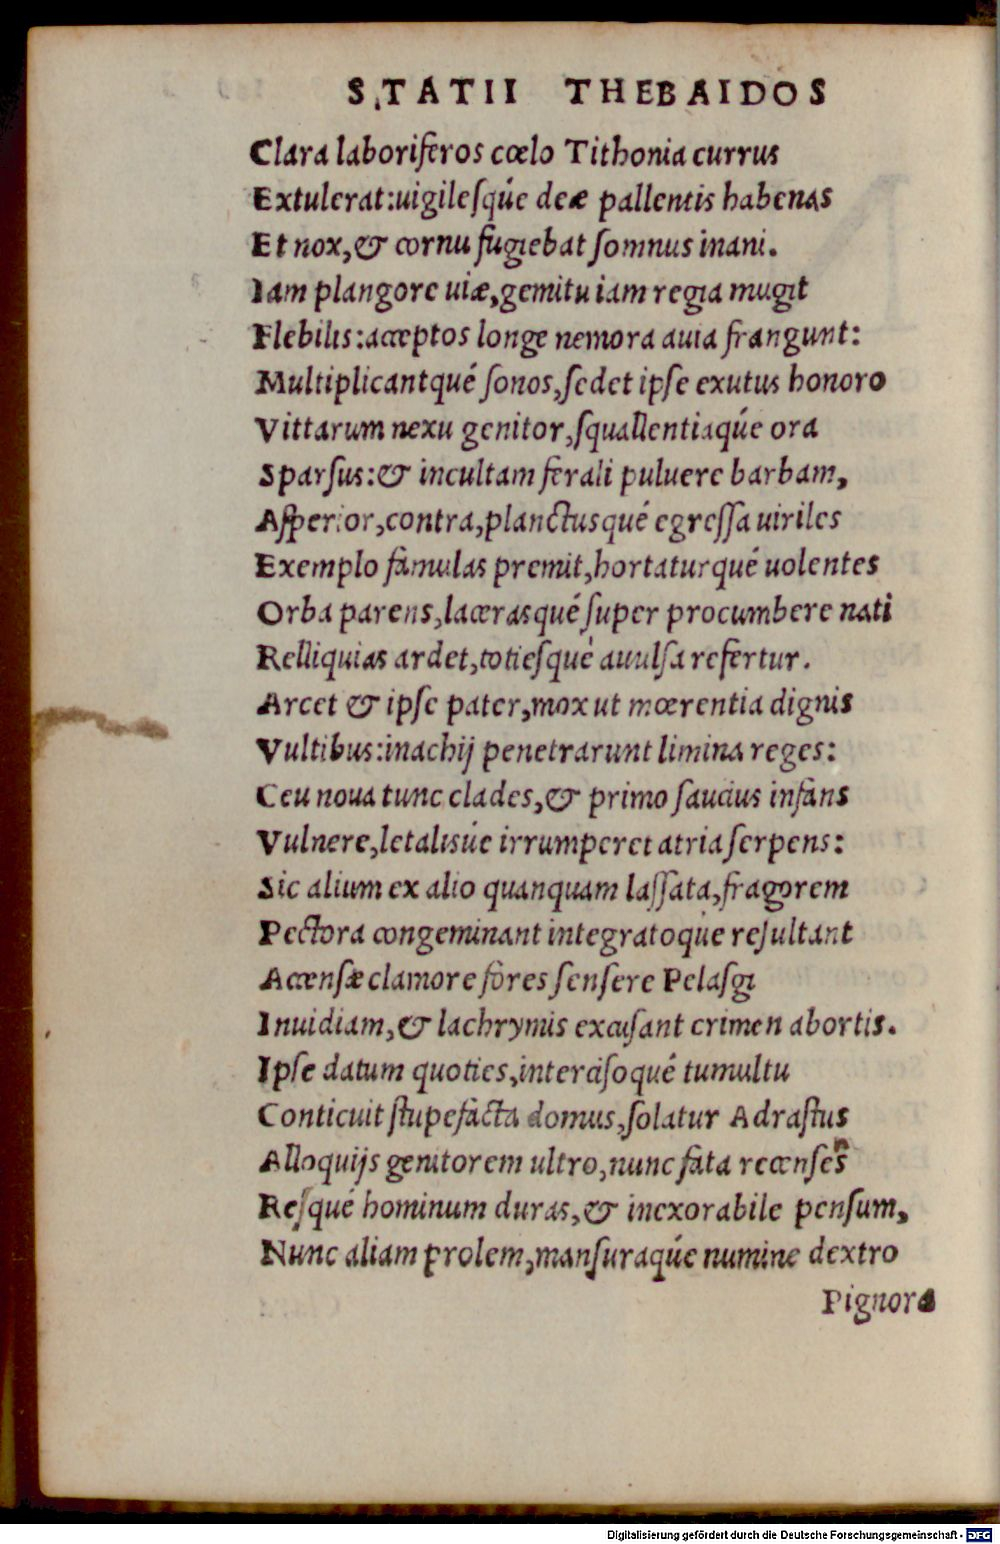 STATII THEBAIDOS
Clara laboriferos cœlo Tithonia currus
Extulerat:uigilesqúe deæ pallentis habenas
Et nox,& cornu fugiebat somnus inani.
Iam plangore uiæ,gemitu iam regia mugit
Flebilis:acceptos longe nemora auia frangunt:
Multiplicantqué sonos,sedet ipse exutus honoro
Vittarum nexu genitor,squallentiaqúe ora
Sparsus:& incultam ferali puluere barbam,
Asperior,contra,planctusqué egressa uiriles
Exemplo famulas premit,hortaturqué uolentes
Orba parens,lacerasqué super procumbere nati
Relliquias ardet,totiesqué auulsa refertur.
Arcet & ipse pater,mox ut mœrentia dignis
Vultibus:inachij penetrarunt limina reges:
Ceu noua tunc clades,& primo saucius infans
Vulnere,letalisúe irrumperet atria serpens:
Sic alium ex alio quanquam lassata,fragorem
Pectora congeminant integratoqúe resultant
Accensæ clamore fores sensere Pelasgi
Inuidiam,& lachrymis excusant crimen abortis.
Ipse datum quoties,intercisoqué tumultu
Conticuit stupefacta domus,solatur Adrastus
Alloquijs genitorem ultro,nunc fata recenses
Resqué hominum duras,& inexorabile pensum,
Nunc aliam prolem,mansuraqúe numine dextro
Pignora
Digitalisierung gefördert durch die Deutsche Forschungsgemeinschaft - DFG